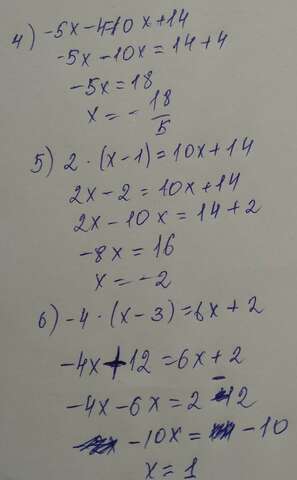 4) -5x-4=10x+14
-5x-10x=14+4
-5x=18
x=-18/5
5) 2·(x-1)=10x+14
2x-2=10x+14
2x-10x=14+2
-8x=16
x=-2
6) -4·(x-3)=6x+2
-4x+12=6x+2
-4x-6x=2-12
-10x=-10
x=1